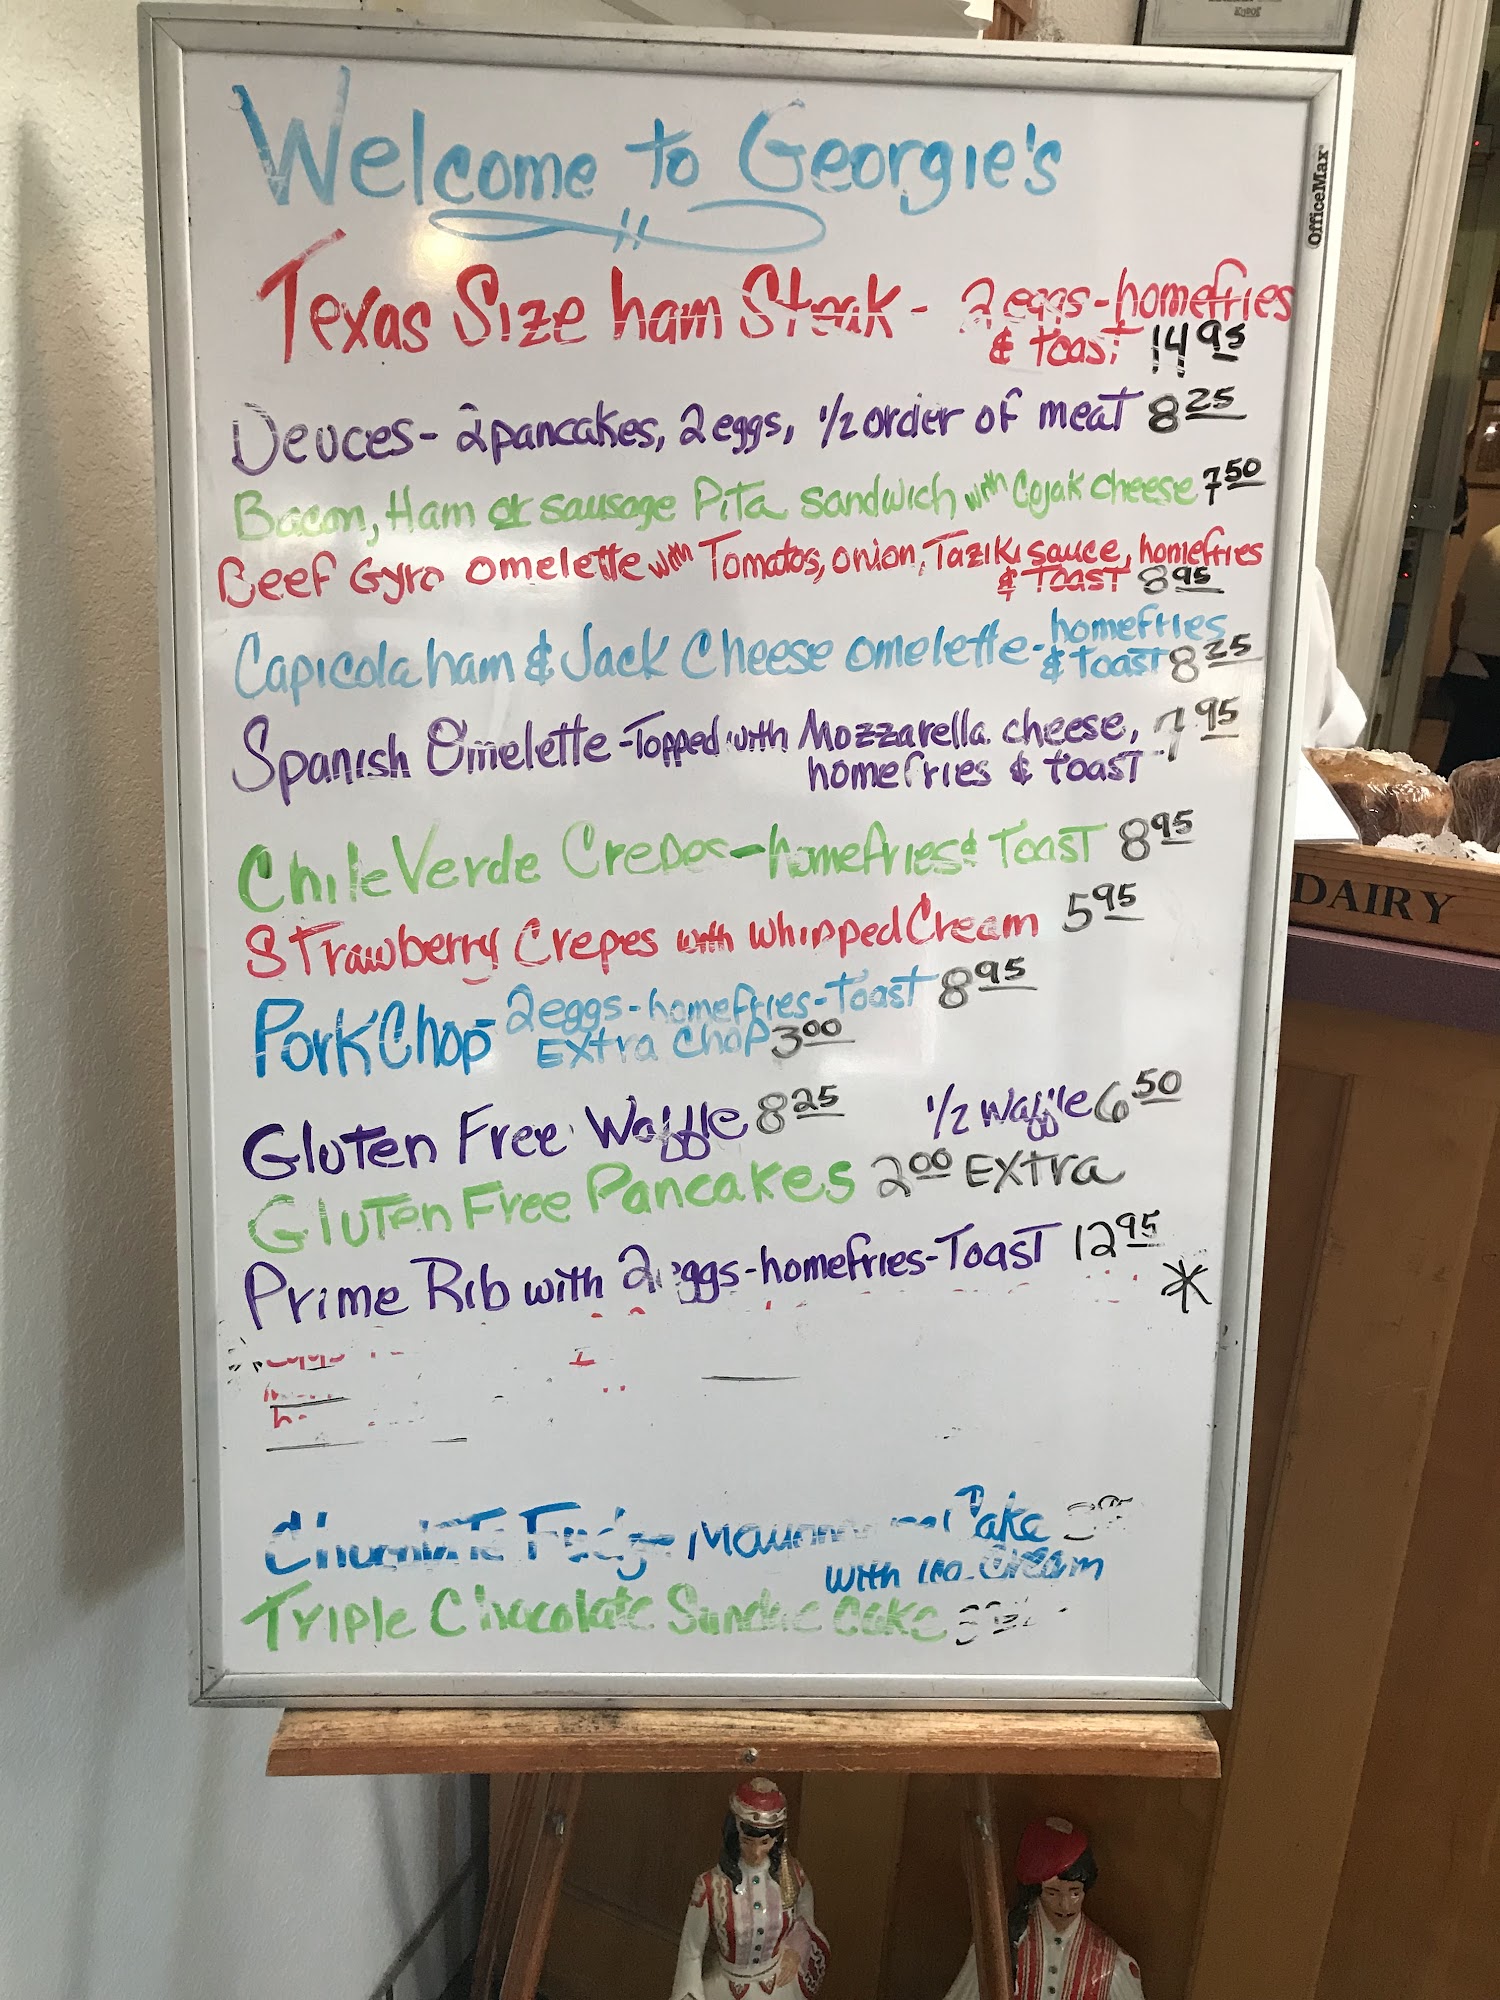 Welcome to Georgie's
OfficeMax
Texas Size ham Steak - 2 eggs - homefries
& toast 14 95
Deuces - 2 pancakes, 2 eggs, 1/2 order of meat 8 25
Bacon, Ham or sausage Pita sandwich with Cojak cheese 7 50
Beef Gyro omelette with Tomatos, onion, Taziki sauce, homefries
& Toast 8 95
Capicola ham & Jack Cheese omelette - homefries
& toast 8 25
Spanish Omelette - Topped with Mozzarella cheese, 7 95
homefries & toast
Chile Verde Crepes - homefries & Toast 8 95
Strawberry Crepes with whipped Cream 5 95
Pork Chop - 2 eggs - homefries - Toast 8 95
Extra Chop 3 00
Gluten Free Waffle 8 25 1/2 waffle 6 50
Gluten Free Pancakes 2 00 Extra
Prime Rib with 2 eggs - homefries - Toast 12 95
*
Chocolate Fudge Cake
with Ice Cream
Triple Chocolate Sundae Cake
DAIRY